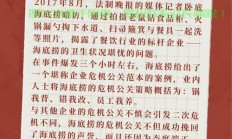 2017年8月，法制晚报的媒体记者卧底
海底捞暗访，通过拍摄老鼠钻食品柜、火
锅漏勺掏下水道、扫帚簸箕与餐具一起洗
等照片，揭露了餐饮行业的标杆企业—
—海底捞的卫生状况堪忧的问题。
在事件爆发三个小时左右，海底捞给出了
一个堪称企业危机公关范本的案例，业内
人士将海底捞的公关策略概括为：锅
我背、错我改、员工我养。
与其他企业的危机公关不慎引发二次危机
不同，海底捞的危机公关不但成功挽回
了海底捞的声誉，而且因为态度诚恳